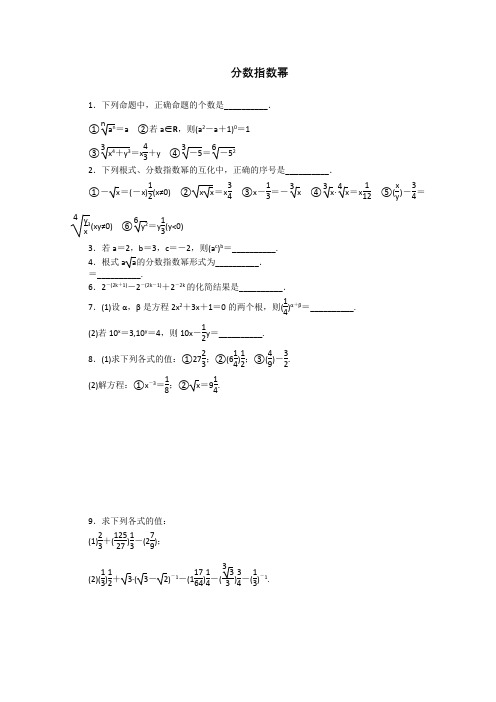 分数指数幂
1．下列命题中，正确命题的个数是__________．
①ⁿ√aⁿ＝a ②若 a∈R，则(a²－a＋1)⁰＝1
③³√x⁴＋y³＝x^(4/3)＋y ④³√－5＝⁶√－5²
2．下列根式、分数指数幂的互化中，正确的序号是__________．
①－√x＝(－x)^(1/2)(x≠0) ②√x√x＝x^(3/4) ③x－^(1/3)＝－³√x ④³√x·⁴√x＝x^(1/12) ⑤(x/y)－^(3/4)＝
⁴√(y/x)³(xy≠0) ⑥⁶√y²＝y^(1/3)(y<0)
3．若 a＝2，b＝3，c＝－2，则(aᶜ)ᵇ＝__________．
4．根式 a√a的分数指数幂形式为__________．
＝__________．
6．2⁻⁽²ᵏ⁺¹⁾－2⁻⁽²ᵏ⁻¹⁾＋2⁻²ᵏ的化简结果是__________．
7．(1)设 α，β 是方程 2x²＋3x＋1＝0 的两个根，则(1/4)^(α＋β)＝__________．
(2)若 10ˣ＝3,10ʸ＝4，则 10x－1/2y＝__________．
8．(1)求下列各式的值：①27^(2/3)；②(6 1/4)^(1/2)；③(4/9)－^(3/2)．
(2)解方程：①x⁻³＝1/8；②√x＝9^(1/4)．
9．求下列各式的值：
(1)^(2/3)＋(125/27)^(1/3)－(2 7/9)；
(2)(1/3)^(1/2)＋√3·(√3－√2)⁻¹－(1 17/64)^(1/4)－(³√3/3)^(3/4)－(1/3)⁻¹.